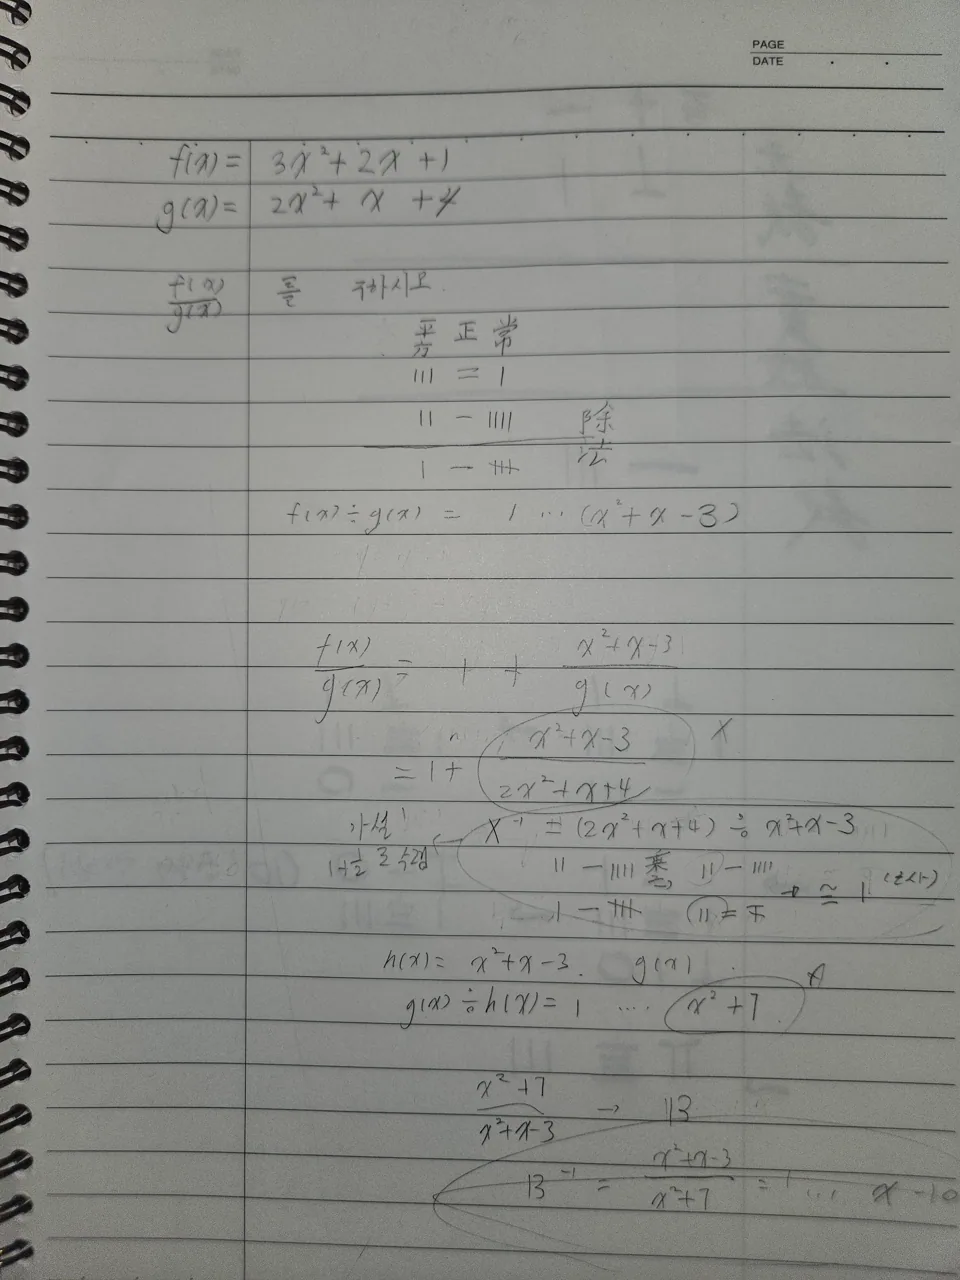 PAGE
DATE
f(x) = 3x² + 2x + 1
g(x) = 2x² + x + 4
f(x)/g(x) 를 구하시오.
平方 正 常
||| = |
|| − |||| 除法
| − 卅
f(x) ÷ g(x) = 1 ... (x² + x − 3)
f(x)/g(x) = 1 + (x² + x − 3)/g(x)
= 1 + (x² + x − 3)/(2x² + x + 4) X
가설! X⁻¹ = (2x² + x + 4) ÷ x² + x − 3
|| − |||| || − ||||
| − 卅 || = ≅ 1
h(x) = x² + x − 3. g(x)
g(x) ÷ h(x) = 1 .... x² + 7 A
(x² + 7)/(x² + x − 3) → B
B⁻¹ = (x² + x − 3)/(x² + 7) = 1 ... x − 10